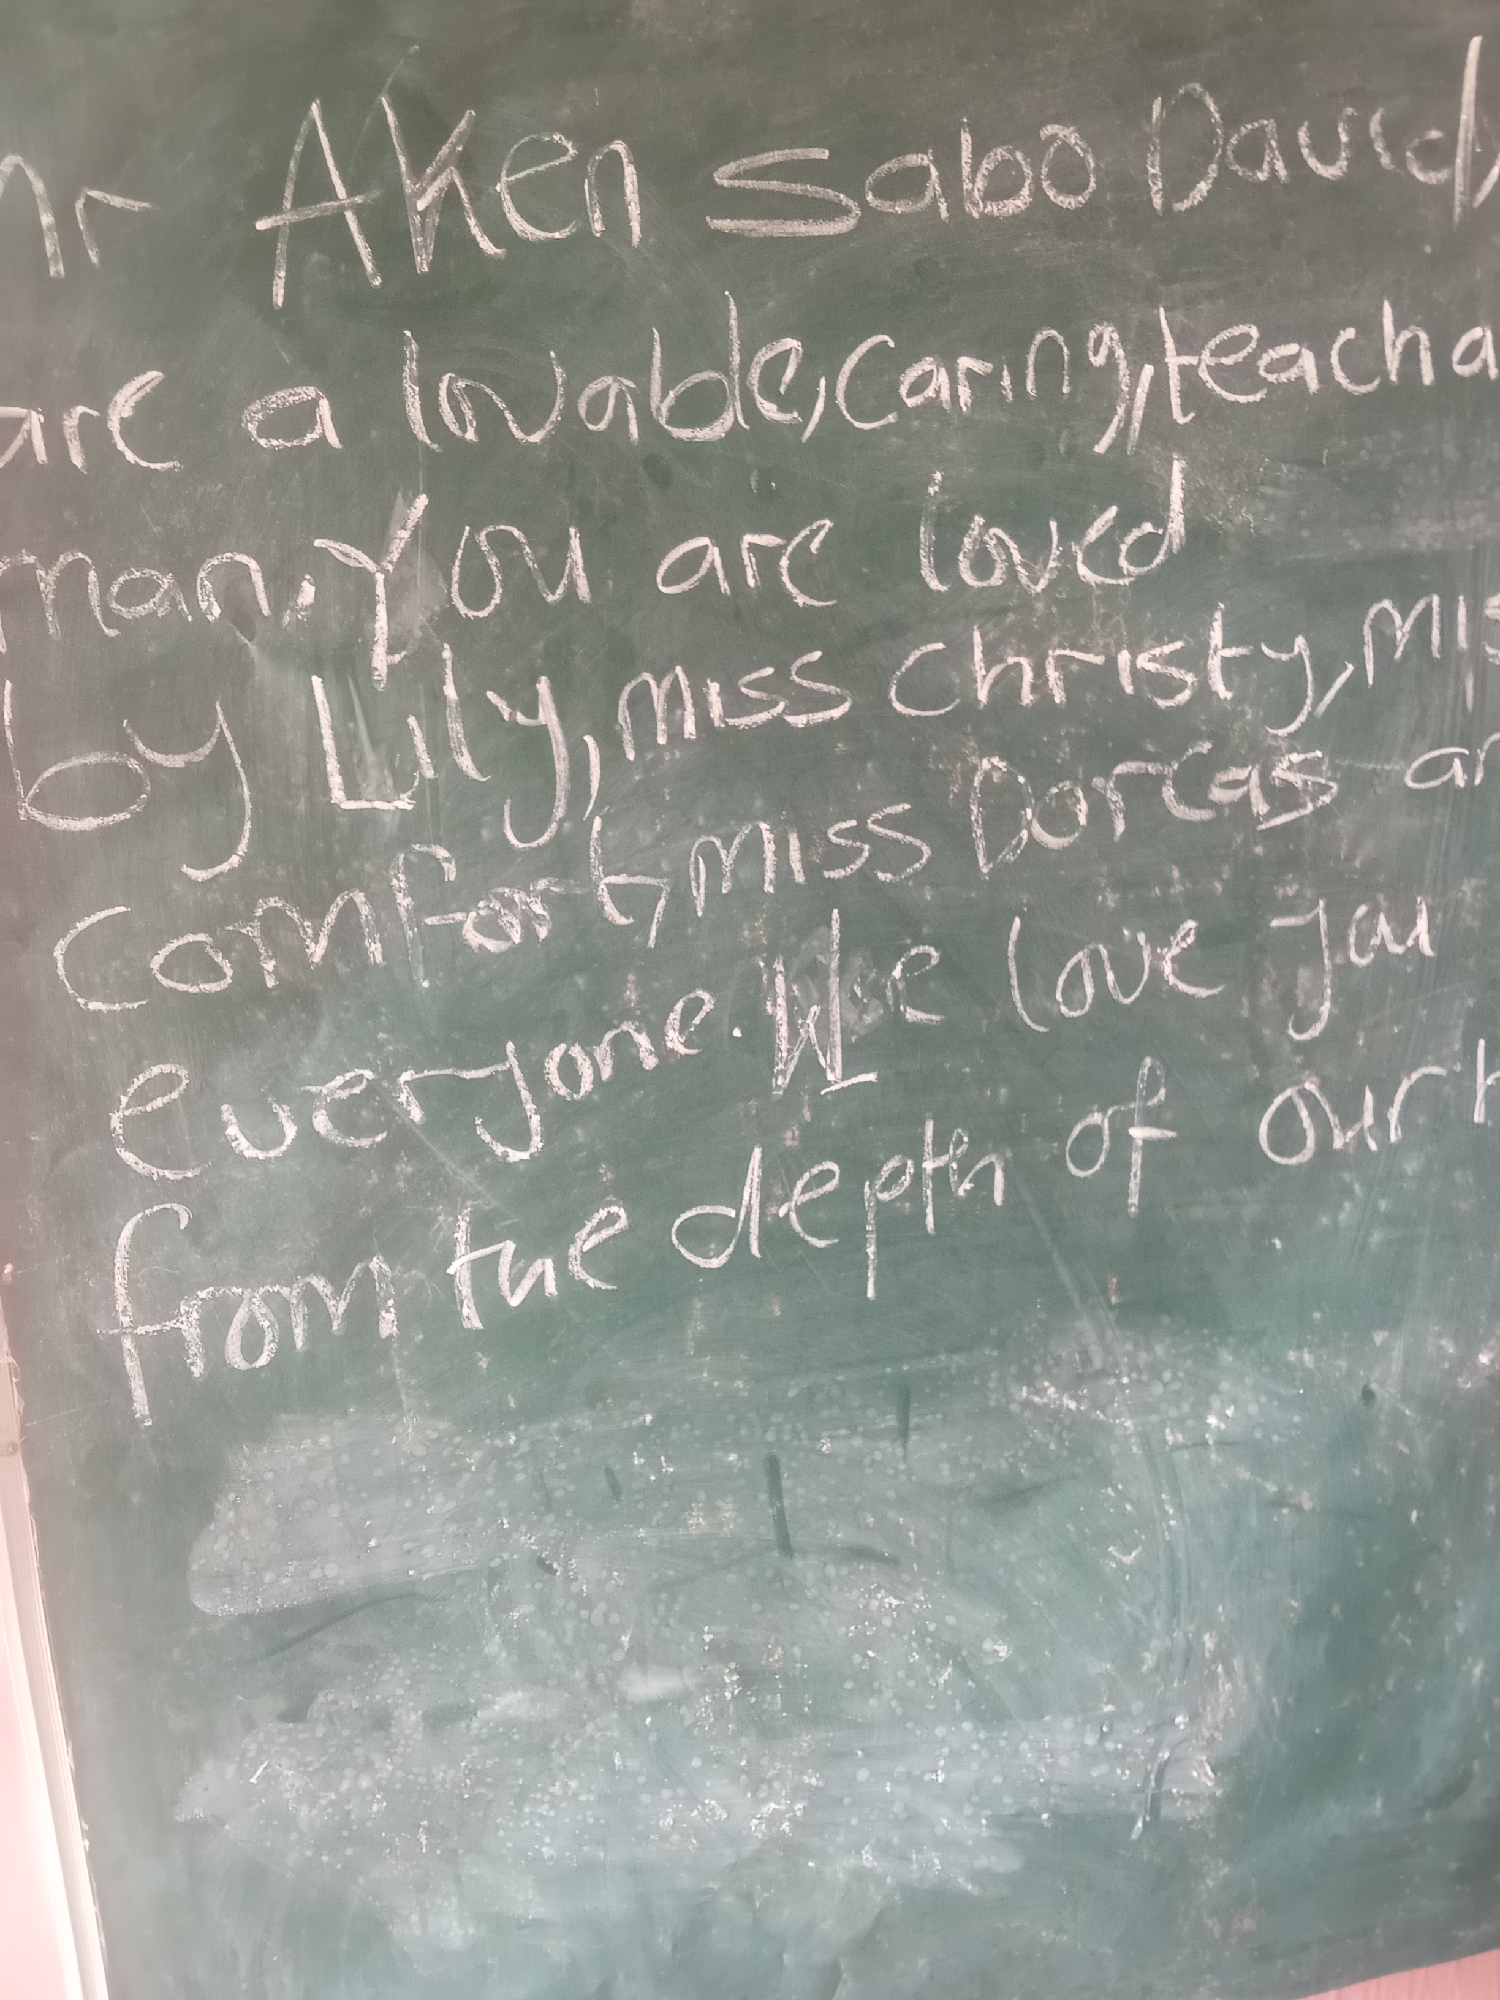 Mr Aken Sabo David,
are a lovable, caring, teacha
man. You are loved
by Lily, miss Christy, mis
comfort, miss Dorcas an
everyone. We love you
from the depth of our h